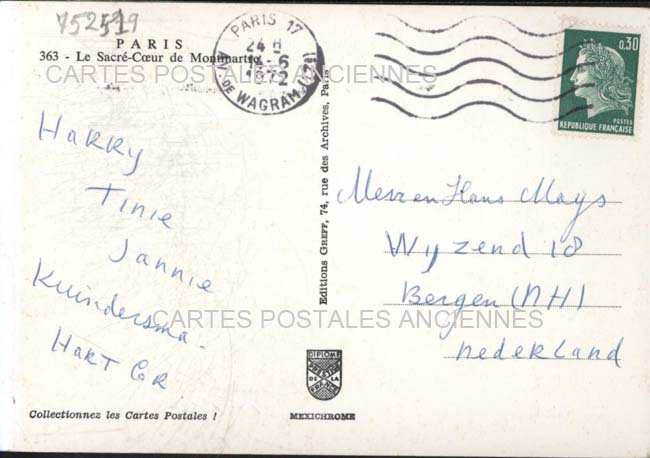 752519
PARIS
363 - Le Sacré-Cœur de Montmartre
CARTES POSTALES ANCIENNES
PARIS 17
24 H
-6
1972
AV. DE WAGRAM (17e)
0,30
POSTES
REPUBLIQUE FRANÇAISE
HARRY
TINIE
JANNIE
Kuindersma.
HART GR.
Editions GREFF, 74, rue des Archives, Paris
en Hans Mays
Wyzend 18
Bergen (NH)
nederland
CARTES POSTALES ANCIENNES
DIPLOME
PRESTIGE
DE LA
FRANCE
MEXICHROME
Collectionnez les Cartes Postales !